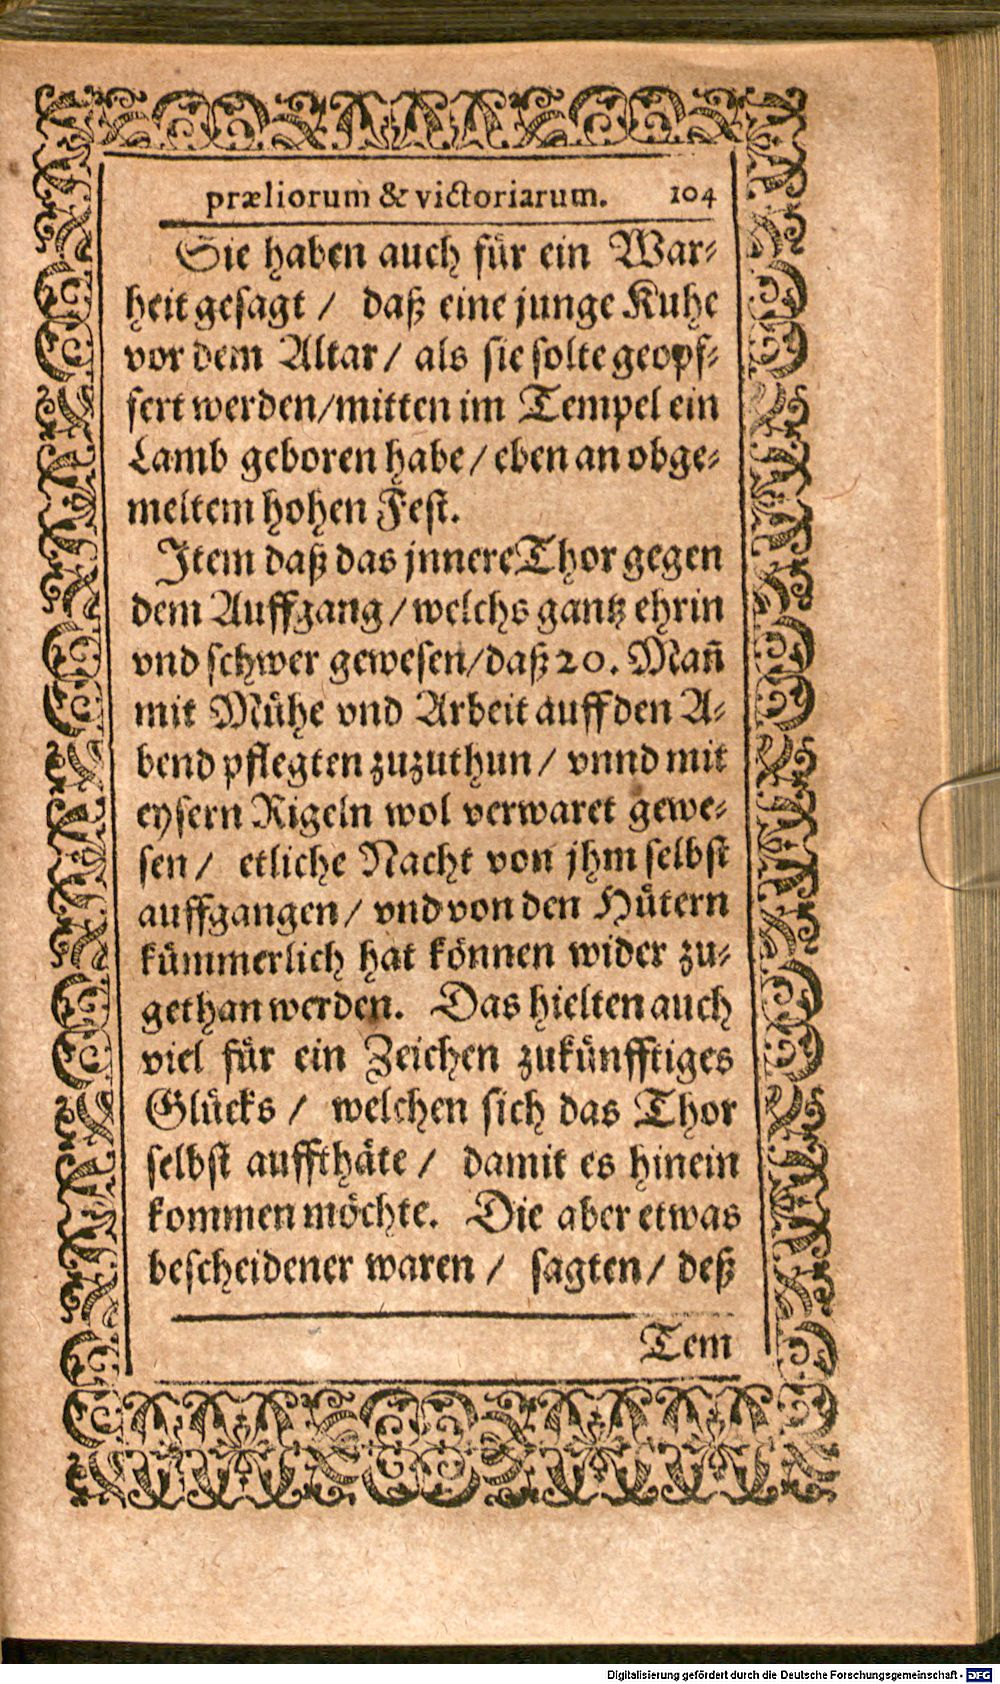 præliorum & victoriarum. 104
Sie haben auch für ein War-
heit gesagt / daß eine junge Kuhe
vor dem Altar / als sie solte geopf-
fert werden/mitten im Tempel ein
Lamb geboren habe / eben an obge-
meltem hohen Fest.
Item daß das jnnere Thor gegen
dem Auffgang / welchs gantz ehrin
vnd schwer gewesen/daß 20. Mañ
mit Mühe vnd Arbeit auff den A-
bend pflegten zuzuthun / vnnd mit
eysern Rigeln wol verwaret gewe-
sen / etliche Nacht von jhm selbst
auffgangen / vnd von den Hütern
kümmerlich hat können wider zu-
gethan werden. Das hielten auch
viel für ein Zeichen zukünfftiges
Glücks / welchen sich das Thor
selbst auffthäte / damit es hinein
kommen möchte. Die aber etwas
bescheidener waren / sagten / deß
Tem
Digitalisierung gefördert durch die Deutsche Forschungsgemeinschaft - DFG